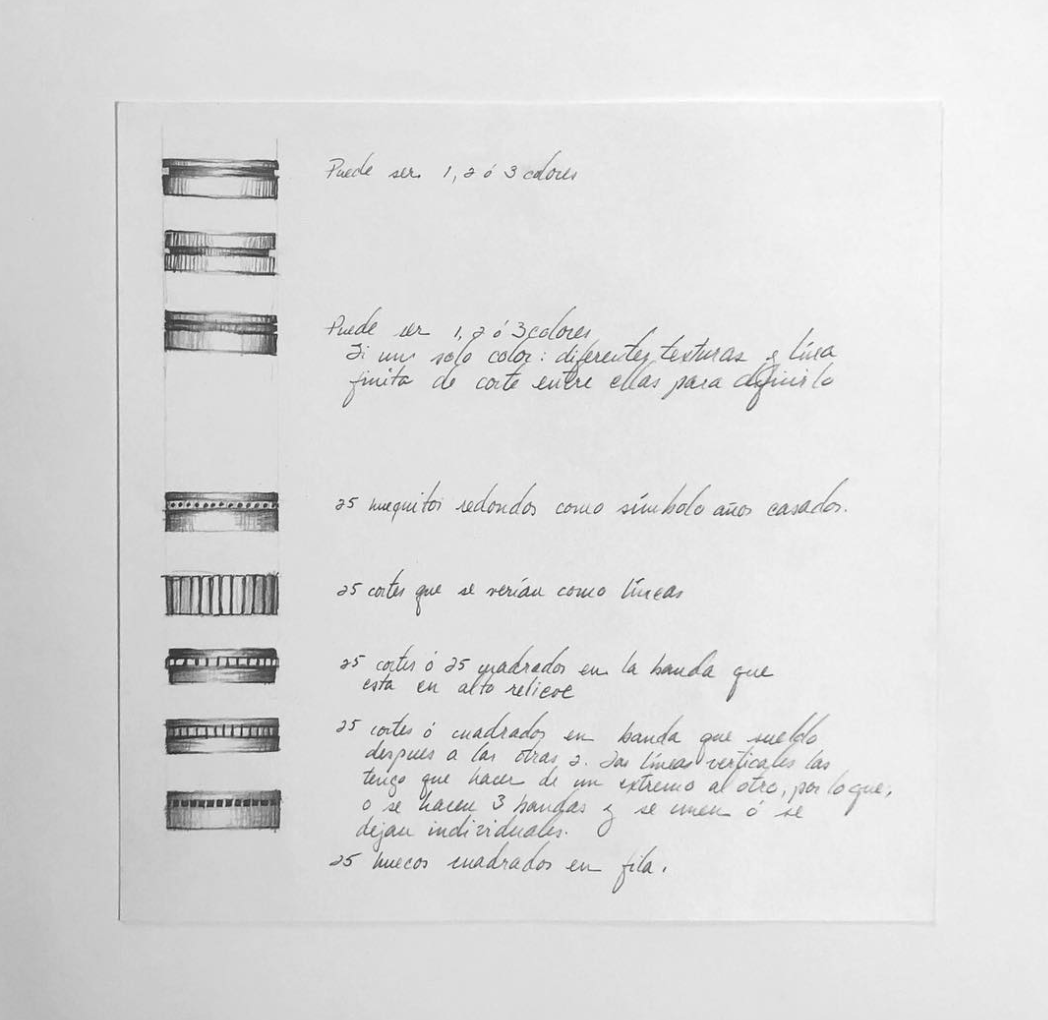 Puede ser 1, 2 ó 3 colores
Puede ser 1, 2 ó 3 colores
Si un solo color: diferentes texturas y línea
finita de corte entre ellas para definirlo
25 huequitos redondos como símbolo años casados.
25 cortes que se verían como líneas
25 cortes ó 25 cuadrados en la banda que
esta en alto relieve
25 cortes ó cuadrados en banda que sueldo
despues a las otras 2. Las líneas verticales las
tengo que hacer de un extremo al otro, por lo que,
o se hacen 3 bandas y se unen ó se
dejan individuales.
25 huecos cuadrados en fila.